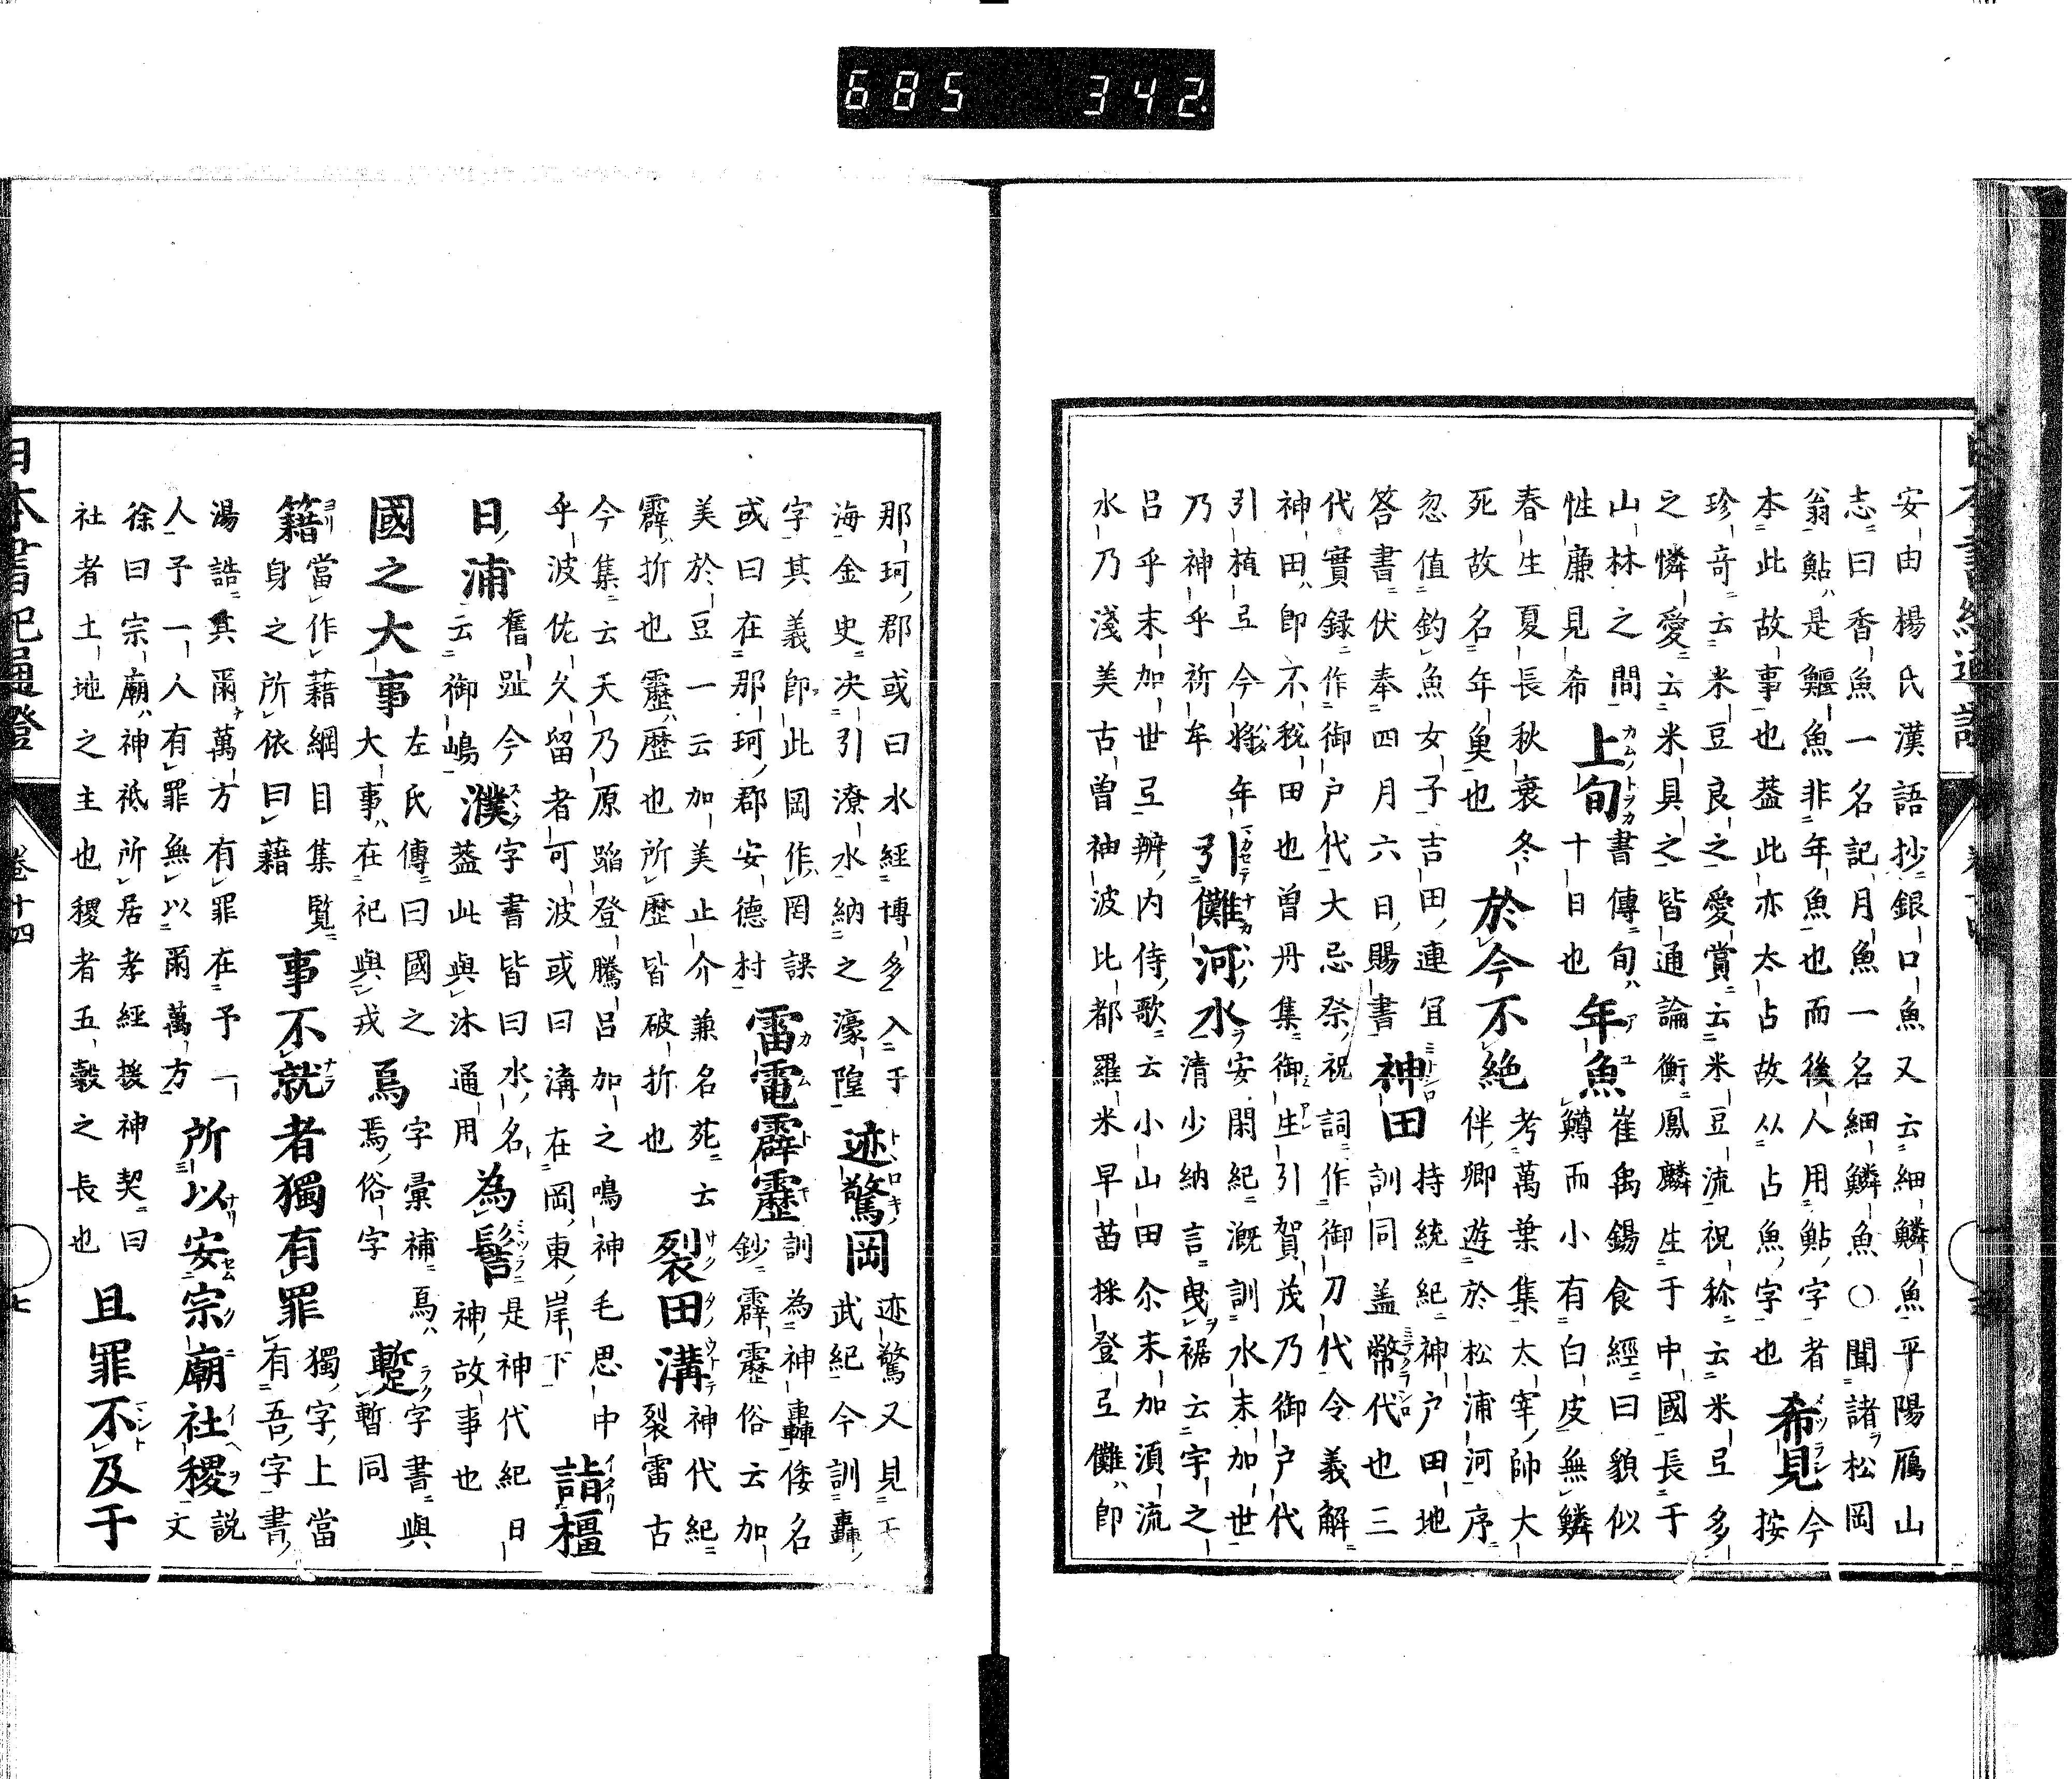 685 342
安由楊氏漢語抄銀口魚又云細鱗魚平陽鴈山
志曰香魚一名記月魚一名細鱗魚○聞諸松岡
翁鮎是鰋魚非年魚也而後人用鮎字者 希見 今
本此故事也葢此亦太占故从占魚字也 按
珍奇云米豆良之愛賞云米豆流祝称云米弖多
之憐愛云米具之皆通論衡鳳麟生于中國長于
山林之間 上旬 書傳旬 年魚 崔禹錫食經曰貌似
性廉見希 十日也 鱒而小有白皮無鱗
春生夏長秋衰冬 於今不絶 考萬葉集太宰帥大
死故名年魚也 伴卿遊於松浦河序
忽値釣魚女子吉田連宜 神田 持統紀神户田地
答書伏奉四月六日賜書 訓同盖幣代也三
代實録作御户代大忌祭祝詞作御刀代令義解
神田即不税田也曽丹集御生引賀茂乃御户代
引植弖今將年 引儺河水 安閑紀漑訓水末加世
乃神乎祈牟 清少納言曵裾云宇之
呂乎末加世弖辨内侍歌云小山田尒末加湏流
水乃淺美古曽袖波比都羅米早苗採登弖儺即
日本書紀通證 卷十四 七
那珂郡或曰水經博多入于 迹驚岡 迹驚又見
海金史决引潦水納之濠隍 武紀今訓轟
字其義即此岡作罔誤 雷電霹靂 訓為神轟倭名
或曰在那珂郡安德村 鈔霹靂俗云加
美於豆一云加美止介兼名苑云 裂田溝 神代紀
霹折也靂歴也所歴皆破折也 裂雷古
今集云天乃原蹈登騰呂加之鳴神毛思中 詣橿
乎波佐久留者可波或曰溝在岡東岸下
日浦 舊趾今 濮 字書皆曰水名 為髻 是神代紀日
云御嶋 葢此與沐通用 神故事也
國之大事 左氏傳曰國之 焉 字彙補焉 蹔 字書與
大事在祀與戎 焉俗字 暫同
籍 當作藉綱目集覧 事不就者獨有罪 獨字上當
身之所依曰藉 有吾字書
湯誥其爾萬方有罪在予一 所以安宗廟社稷 説
人予一人有罪無以爾萬方 文
徐曰宗廟神祇所居孝經援神契曰 且罪不及于
社者土地之主也稷者五穀之長也